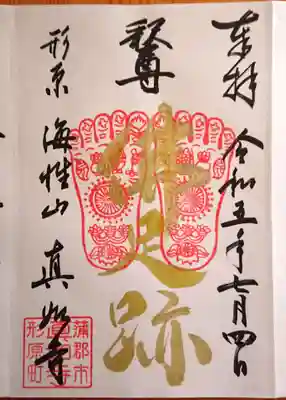 奉拝 令和五年七月四日
佛足跡
形原 海性山 真如寺
蒲郡市
真如寺
形原町